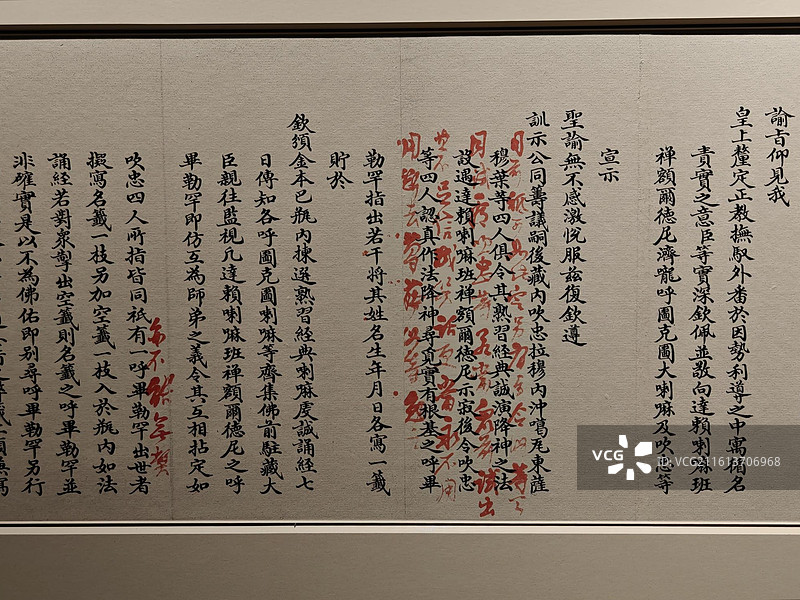 諭旨仰見我
皇上釐定正教撫馭外番於因勢利導之中寓循名
責實之意臣等實深欽佩並敬向達賴喇嘛班
禪額爾德尼濟嚨呼圖克圖大喇嘛及吹忠等
宣示
聖諭無不感激悅服茲復欽遵
訓示公同籌議嗣後藏內吹忠拉穆內沖噶瓦東薩
穆葉等四人俱令其熟習經典誠演降神之法
設遇達賴喇嘛班禪額爾德尼示寂後令吹忠
等四人認真作法降神尋覓實有根基之呼畢
勒罕指出若干將其姓名生年月日各寫一籤
貯於
欽頒金本巴瓶內揀選熟習經典喇嘛虔誠誦經七
日傳知各呼圖克圖喇嘛等齊集佛前駐藏大
臣親往監視凡達賴喇嘛班禪額爾德尼之呼
畢勒罕即仿互為師弟之義令其互相拈定如
亦不能無弊
吹忠四人所指皆同祇有一呼畢勒罕出世者
擬寫名籤一枝另加空籤一枝入於瓶內如法
誦經若對眾掣出空籤則名籤之呼畢勒罕並
非確實是以不為佛佑即別尋呼畢勒罕另行
vcg.com
视觉中国
ID:VCG211613706968